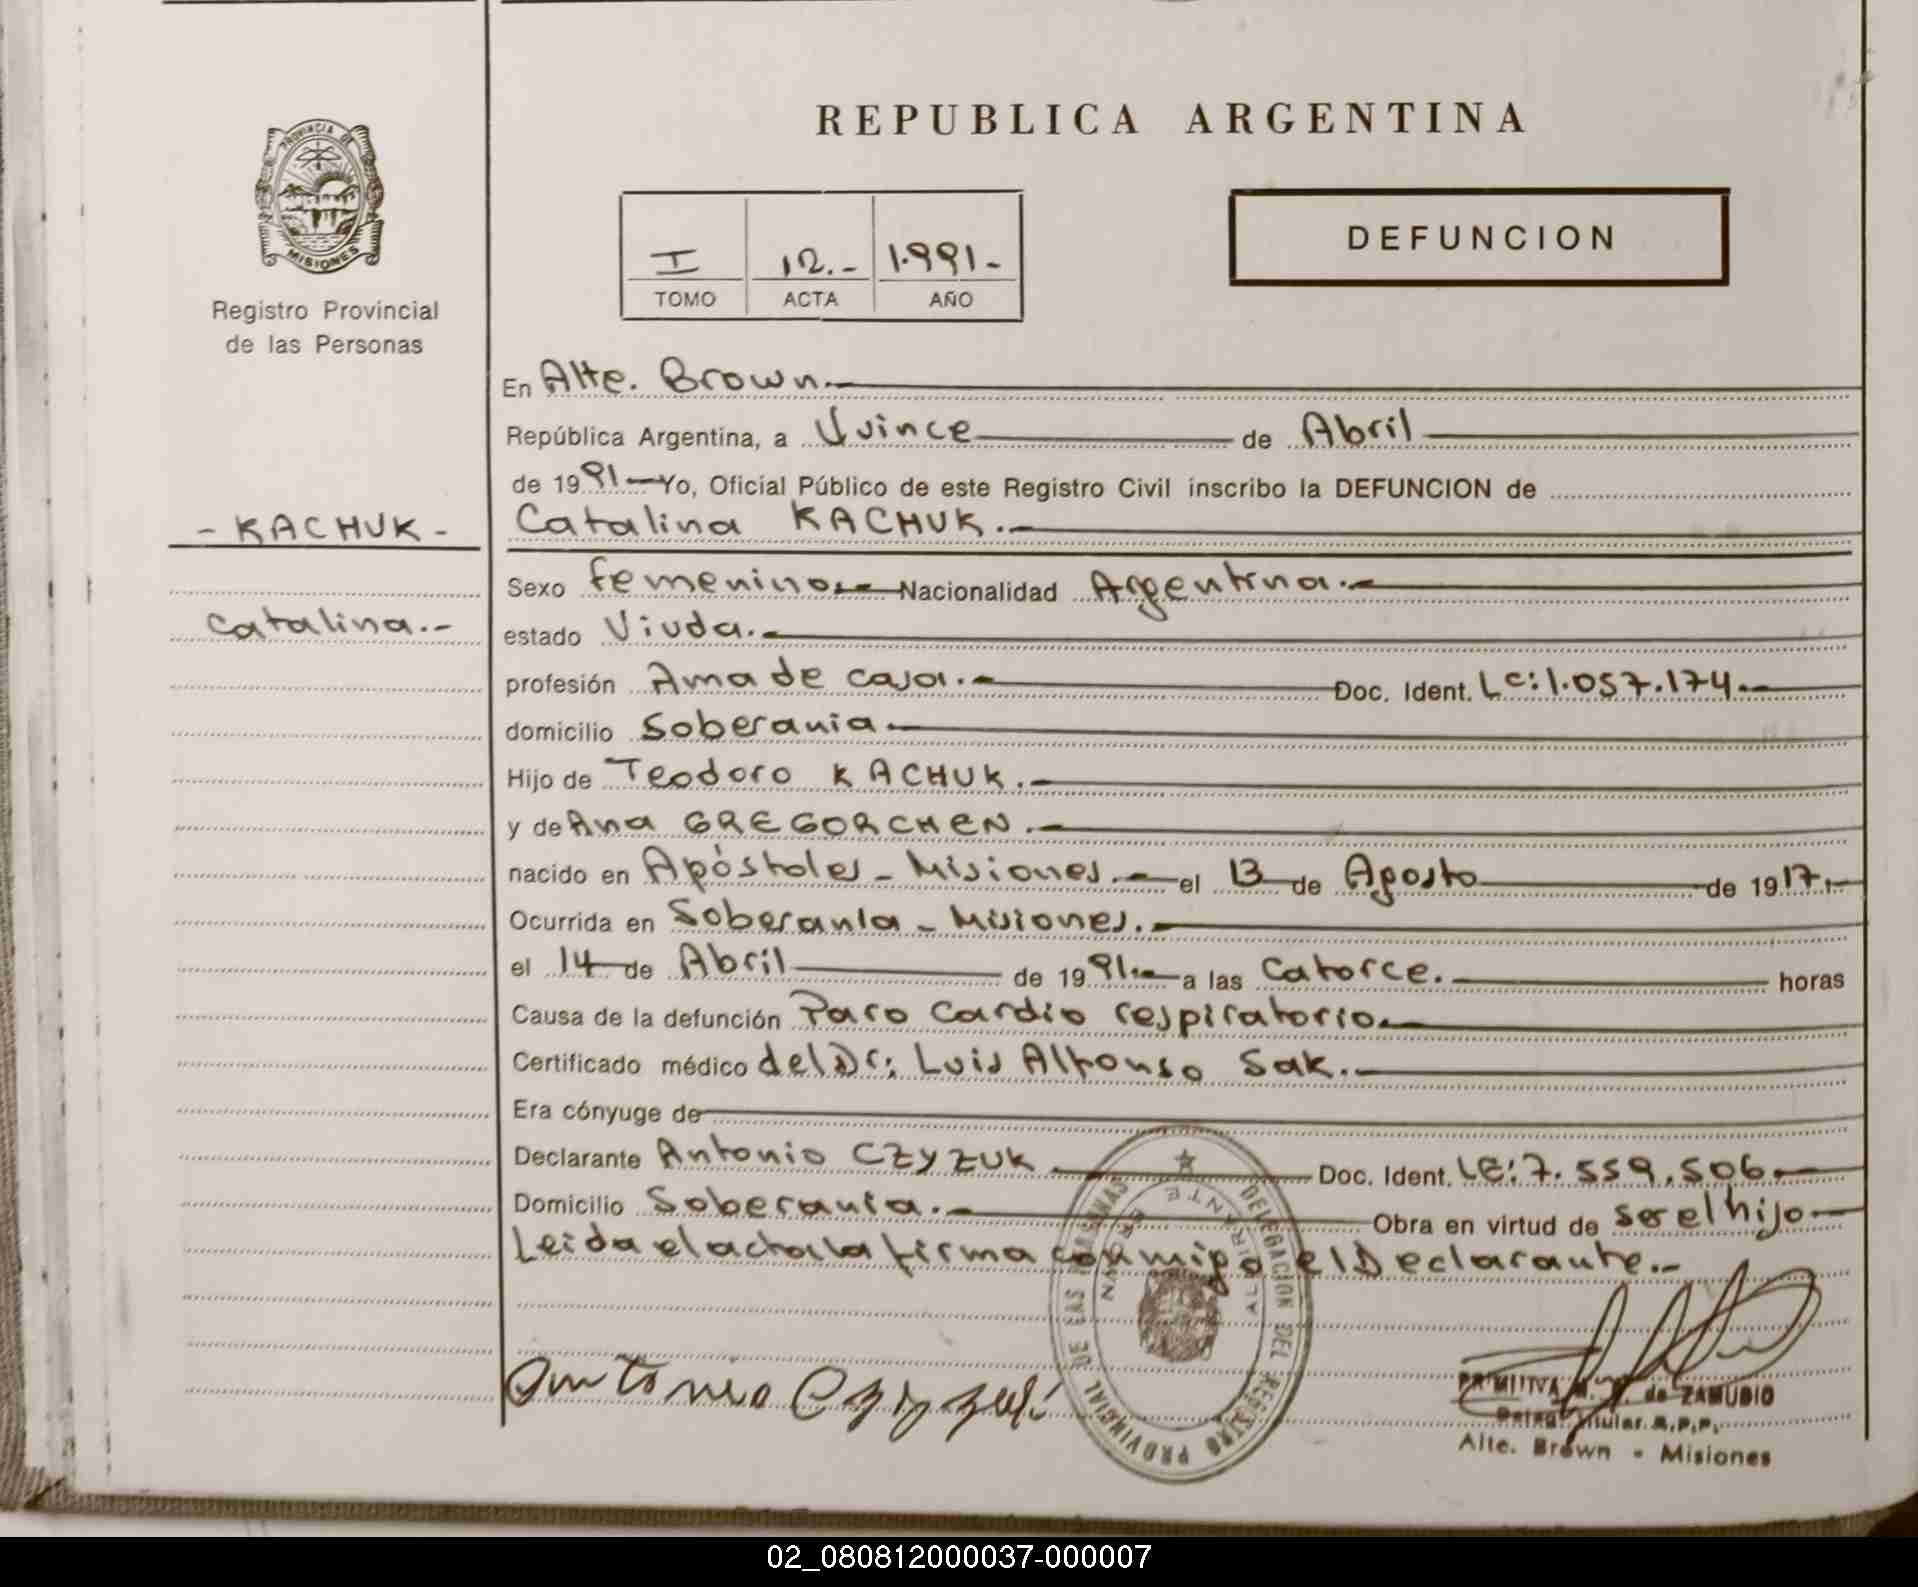 REPUBLICA ARGENTINA
PROVINCIA DE
MISIONES
Registro Provincial
de las Personas
I 12.- 1.991-
TOMO ACTA AÑO
DEFUNCION
En Alte. Brown.
República Argentina, a Quince de Abril
de 1991 Yo, Oficial Público de este Registro Civil inscribo la DEFUNCION de
- KACHUK -
Catalina.-
Catalina KACHUK.
Sexo femenino. Nacionalidad Argentina.
estado Viuda.
profesión Ama de casa. Doc. Ident. LC: 1.057.174.
domicilio Soberania
Hijo de Teodoro KACHUK.
y de Ana GREGORCHEN.
nacido en Apóstoles - Misiones. el 13 de Agosto de 1917.
Ocurrida en Soberania - Misiones.
el 14 de Abril de 1991. a las Catorce. horas
Causa de la defunción Paro Cardio respiratorio.
Certificado médico del Dr: Luis Alfonso Sak.
Era cónyuge de
Declarante Antonio CZYZUK Doc. Ident. LE: 7.559.506.
Domicilio Soberania. Obra en virtud de ser el hijo
Leida el acta la firma conmigo el Declarante.-
DELEGACION DEL REGISTRO PROVINCIAL DE LAS PERSONAS
ALMIRANTE BROWN
Antonio
PRIMITIVA M. de ZAMUDIO
Titular R.P.P.
Alte. Brown - Misiones
02_080812000037-000007